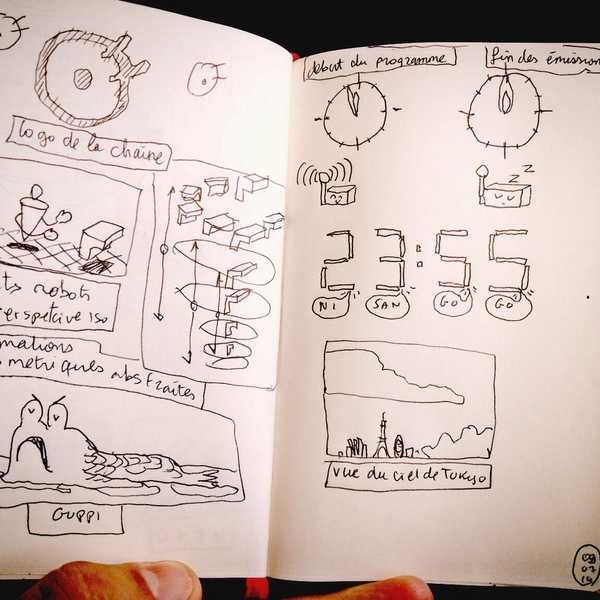 logo de la chaîne
robots
perspective iso
métriques abstraites
GUPPI
début du programme
fin des émissions
z z
23:55
NI SAN GO GO
vue du ciel de Tokyo